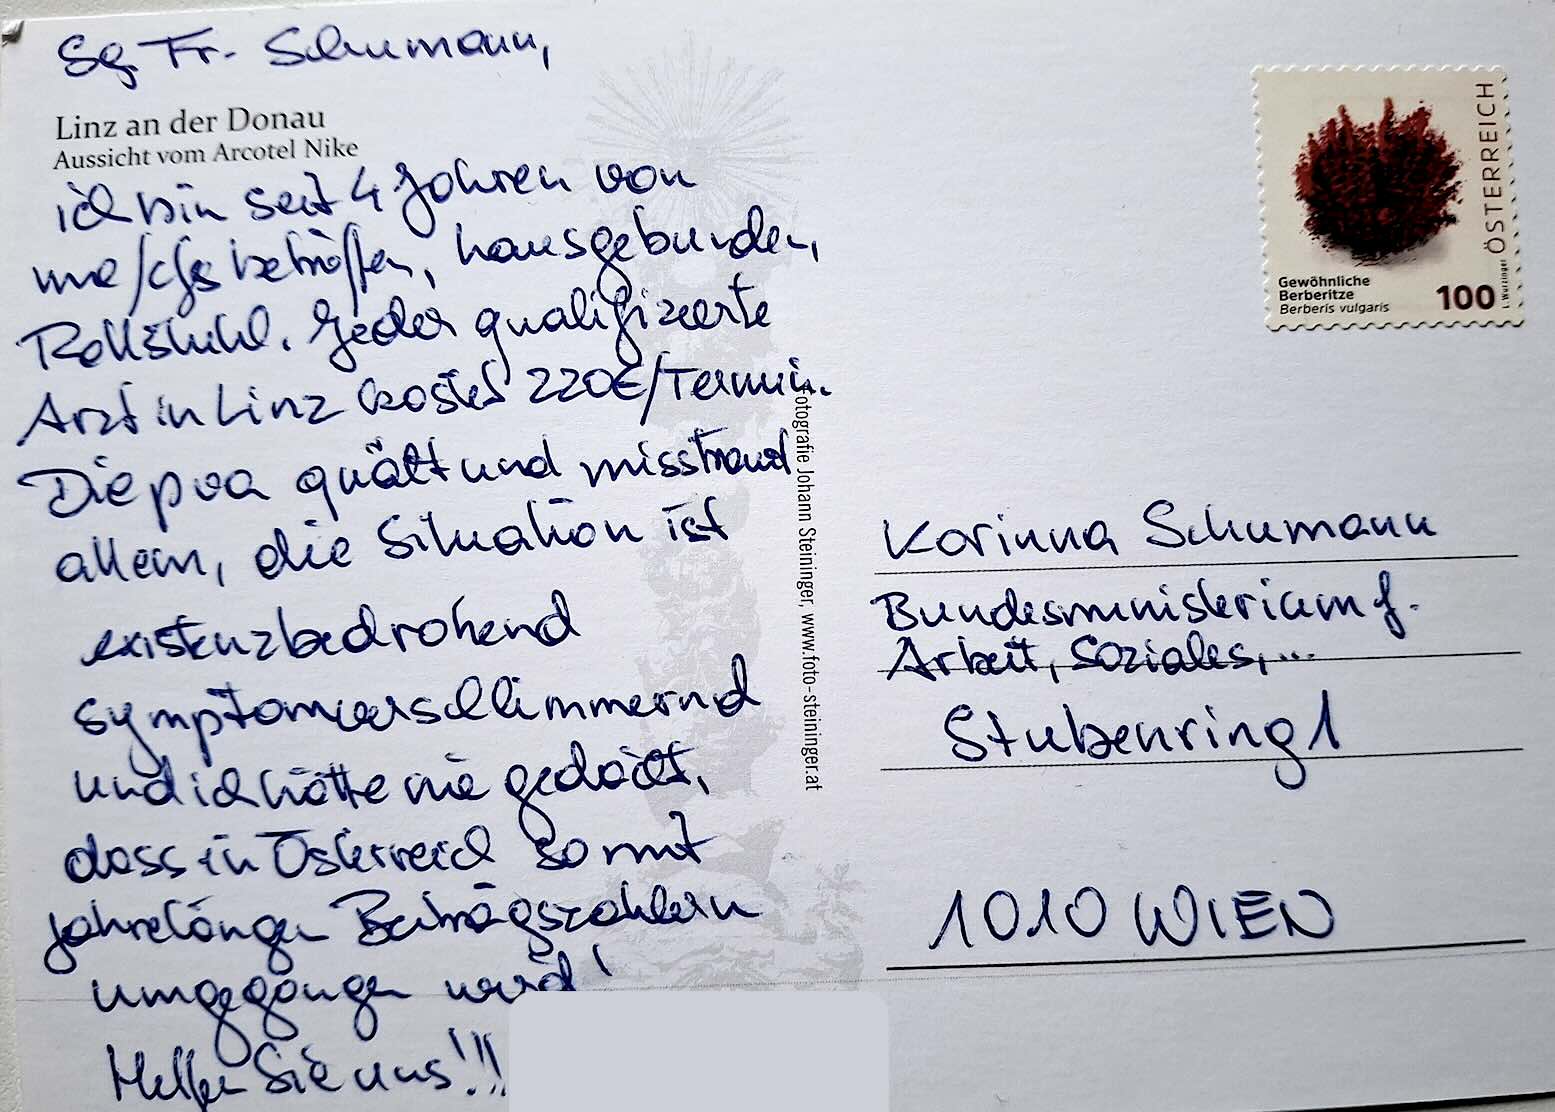 Sg. Fr. Schumann,
Linz an der Donau
Aussicht vom Arcotel Nike
ich bin seit 4 Jahren von
me/cfs betroffen, hausgebunden,
Rollstuhl. Jeder qualifizierte
Arzt in Linz kostet 220€/Termin.
Die pva quält und misstraut
allem, die Situation ist
existenzbedrohend
symptomverschlimmernd
und ich hätte nie gedacht,
dass in Österreich so mit
jahrelangen Beitragszahlern
umgegangen wird!
Helfen Sie uns!!!
Fotografie Johann Steininger, www.foto-steininger.at
ÖSTERREICH
Gewöhnliche
Berberitze
Berberis vulgaris
100
L. Wurzinger
Korinna Schumann
Bundesministerium f.
Arbeit, Soziales,...
Stubenring 1
1010 WIEN